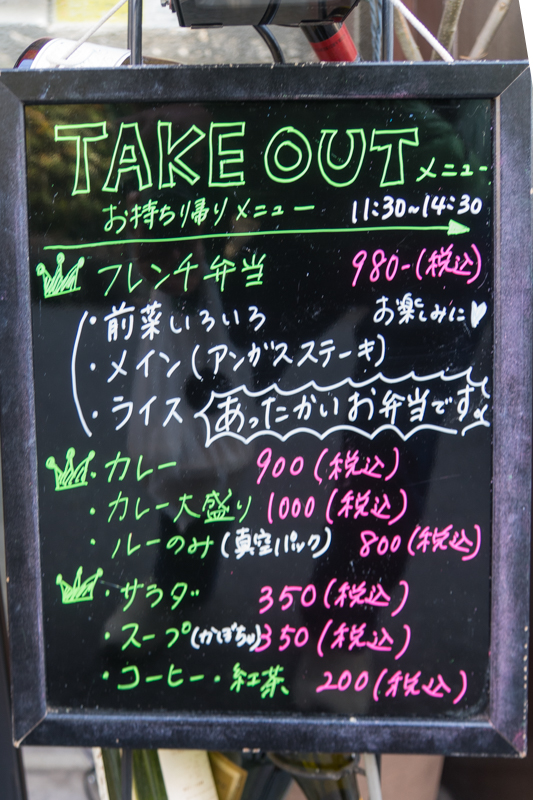 TAKE OUT メニュー
お持ち帰りメニュー 11:30~14:30
フレンチ弁当 980-(税込)
・前菜いろいろ お楽しみに♥
・メイン(アンガスステーキ)
・ライス あったかいお弁当です
・カレー 900(税込)
・カレー大盛り 1000(税込)
・ルーのみ(真空パック) 800(税込)
・サラダ 350(税込)
・スープ(かぼちゃ)350(税込)
・コーヒー・紅茶 200(税込)